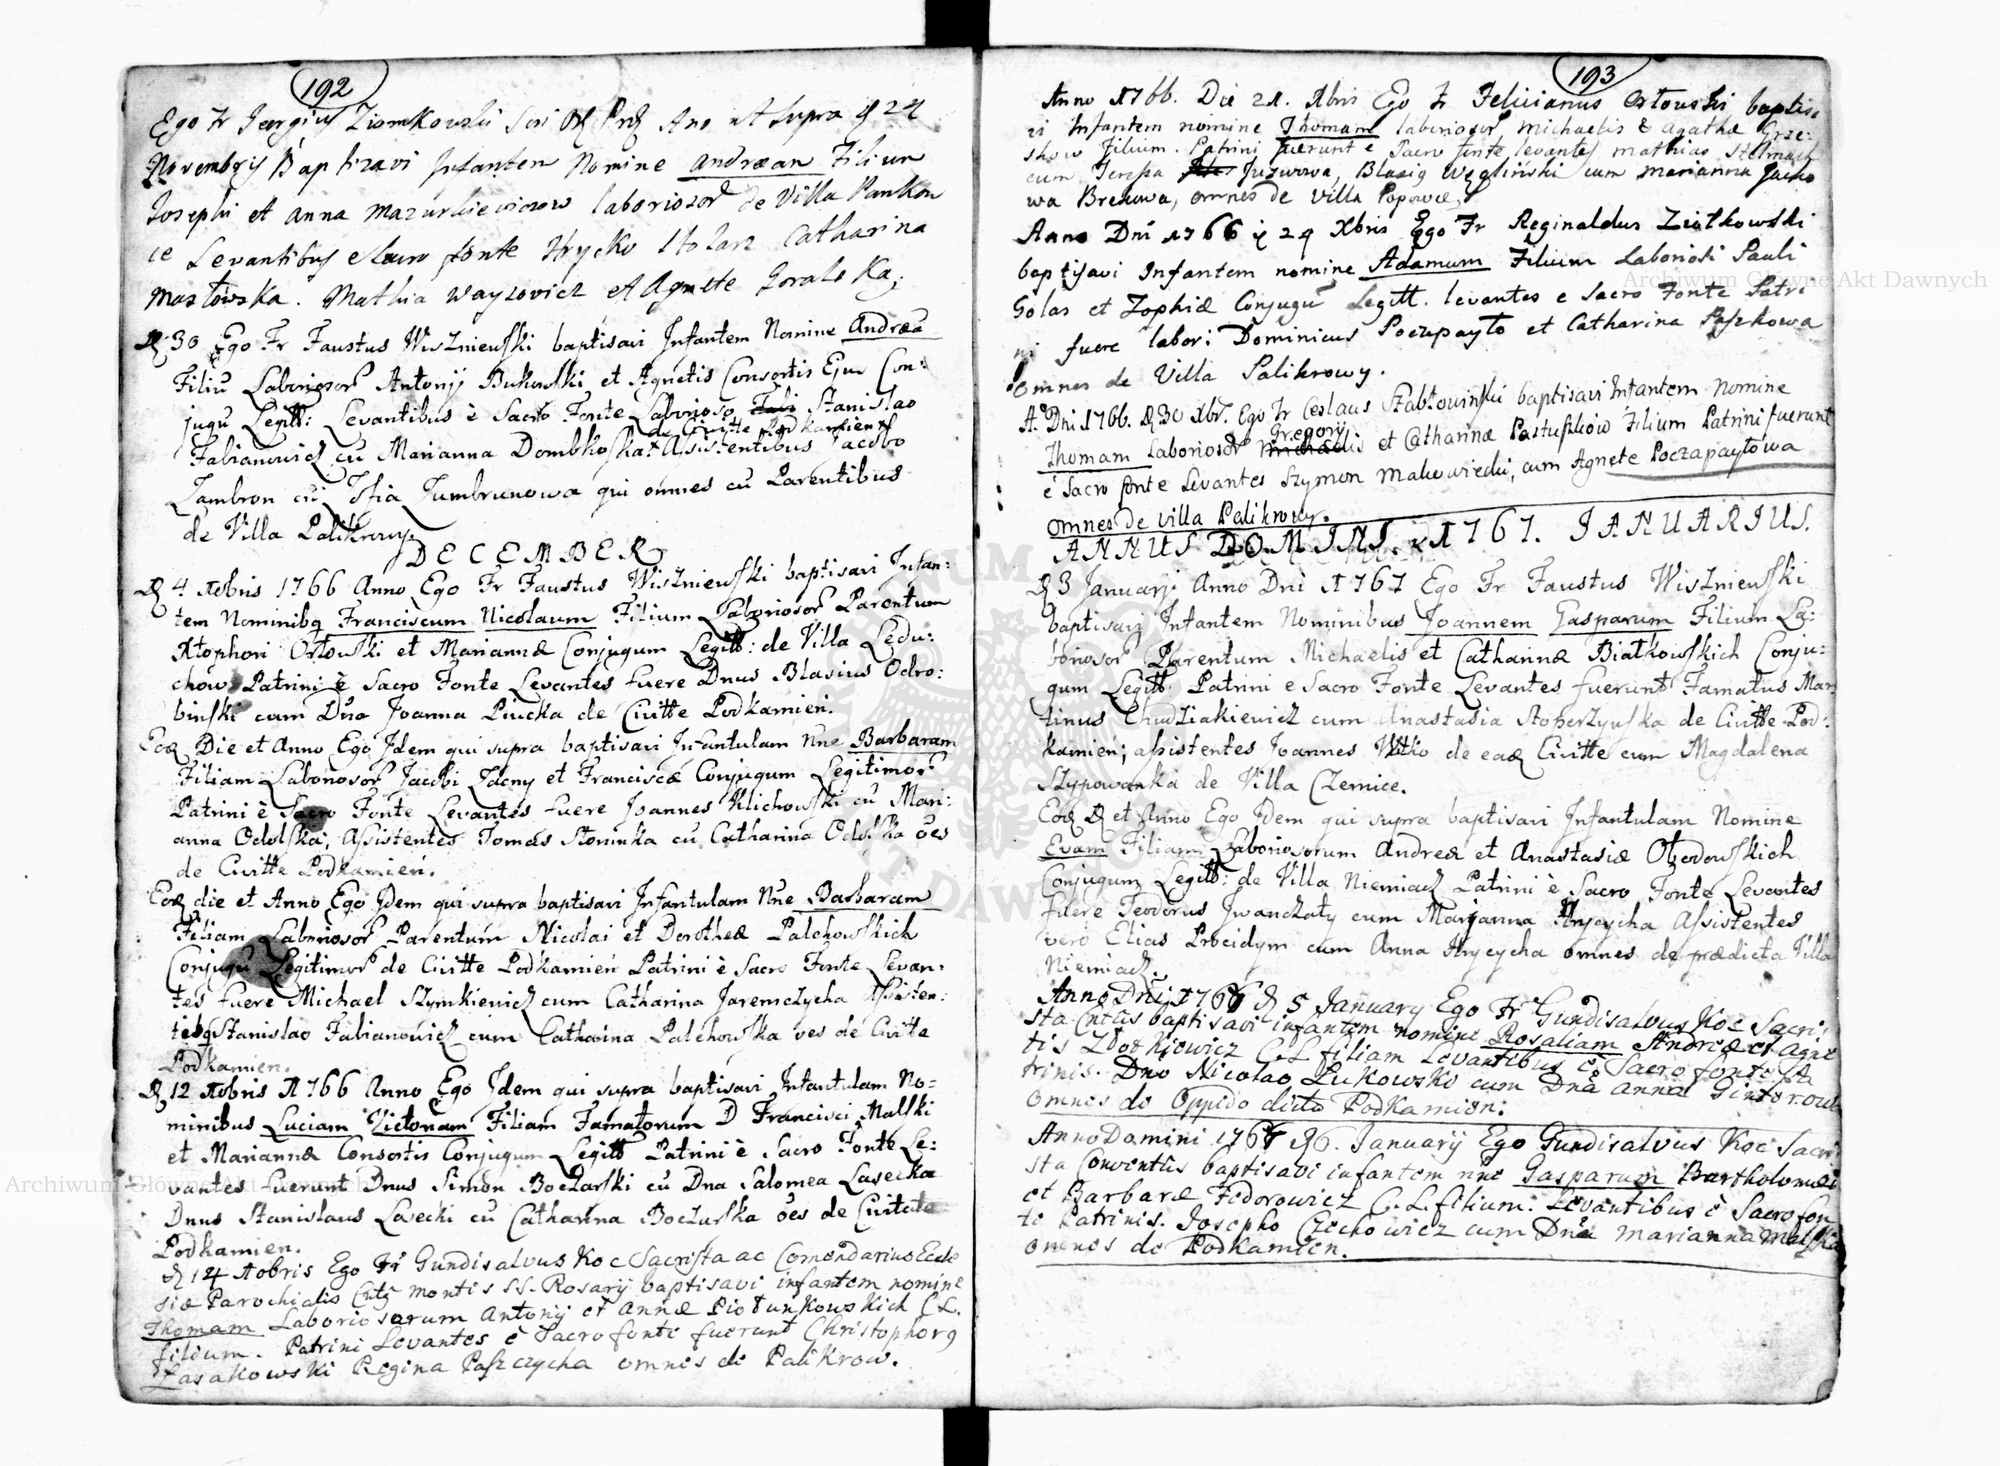 192
Ego Fr Jergius Ziomkowski Sui Ord Prd Ano ut supra d 24
Novembris Baptizavi Infantem Nomine Andræan Filium
Josephi et Anna Mazurkiewiczow laboriosor de Villa Pankow
ce Levantibus e Sacro fonte Hrycko Stolarz Catharina
Masłowska. Mathia Wayzovicz et Agnete Goralska;
D. 30 Ego Fr Faustus Wiszniewski baptisavi Infantem Nomine Andrea
Filiu Laboriosor Antonij Bukowski et Agnetis Consortis Ejus Con:
jugu Legitt: Levantibus è Sacro Fonte Laborioso Fabi Stanislao
de Civitte Podkamien
Fabianowicz cu Marianna Dombkoska Assistentibus Jacobo
Zambron cu Zofia Zumbrunowa qui omnes cu Parentibus
de Villa Palikrowy.
DECEMBER
D 4 Xbris 1766 Anno Ego Fr Faustus Wiszniewski baptisavi Infan:
tem Nominibq Franciscum Nicolaum Filium Laboriosor Parentum
Xtophori Orłowski et Mariannæ Conjugum Legitt: de Villa Ledu:
chow Patrini è Sacro Fonte Levantes fuere Dnus Blasius Odro:
binski cum Dna Joanna Piucka de Civitte Podkamień.
Eod Die et Anno Ego Idem qui supra baptisavi Infantulam Nne Barbaram
Filiam Laboriosor Jacobi Zacny et Franciscæ Conjugum Legitimor
Patrini è Sacro Fonte Levantes fuere Joannes Klichowski cu Mari:
anna Odolska, Assistentes Tomas Słoninka cu Catharina Odolska oes
de Civitte Podkamień.
Eod die et Anno Ego Idem qui supra baptisavi Infantulam Nne Barbaram
Filiam Laboriosor Parentum Nicolai et Dorotheæ Palchowskich
Conjugu Legitimor de Civitte Podkamień Patrini è Sacro Fonte Levan:
tes fuere Michael Szymkiewicz cum Catharina Jaremczycha Assisten:
tibq Stanislao Fabianowicz cum Catharina Palchowska oes de Civitte
Podkamien.
D 12 Xbris 1766 Anno Ego Idem qui supra baptisavi Infantulam No=
minibus Luciam Victoriam Filiam Famatorum D Francisci Malski
et Mariannæ Consortis Conjugum Legitt Patrini è Sacro Fonte Le:
vantes fuerunt Dnus Simon Boczarski cu Dna Salomea Lasecka
Dnus Stanislaus Lasecki cu Catharina Boczarska oes de Civitate
Podkamien.
D 14 Xobris Ego Fr Gundisalvus Koc Sacrista ac Comendarius Eccle
siæ Parochialis Cnts montis SS. Rosarij baptisavi infantem nomine
Thomam Laboriosorum Antonij et Annæ Piotunkowskich C L.
filium. Patrini Levantes è Sacro fonte fuerunt Christophorg
Łasakowski Regina Paszczycha omnes de Palikrow.
193
Anno 1766. Die 21. Xbris Ego Fr Felicianus Orłowski baptisa
vi Infantem nomine Thomam laboriosor Michaelis & Agathæ Grze:
skow Filium. Patrini fuerunt e Sacro fonte levantes Mathias Stelmach
cum Teressa Juzwowa, Blasig Węgliński cum Marianna Jacko
wa Brekowa, omnes de Villa Popowce
Anno Dni 1766 d 24 Xbris Ego Fr Reginaldus Ziołkowski
baptisavi Infantem nomine Adamum Filium Laboriosi Pauli
Golas et Zophiæ Conjugu Legitt. levantes e Sacro Fonte Patri
ni fuere labori Dominicus Poczapayło et Catharina Paszkowa
Omnes de Villa Palikrowy.
Ao Dni 1766. D 30 Xbr. Ego Fr Ceslaus Stabłowinski baptisavi Infantem Nomine
Gregory
Thomam Laboriosor Michaelis et Catharinæ Pastuszkiow Filium Patrini fuerunt
è Sacro fonte Levantes Szymon Makowiecki, cum Agnete Poczapaytowa
omnes de villa Palikrowy.
ANNUS DOMINI. 1767. JANUARIUS.
D 3 Januarij Anno Dni 1767 Ego Fr Faustus Wiszniewski
baptisavi Infantem Nominibus Joannem Gasparum Filium La:
boriosor Parentum Michaelis et Catharinæ Białkowskich Conju:
gum Legitt. Patrini e Sacro Fonte Levantes fuerunt Famatus Mar
tinus Chudziakiewicz cum Anastasia Stoberzyńska de Civitte Pod:
kamień; assistentes Joannes Witko de eadq Civitte cum Magdalena
Szypowonka de Villa Czernice.
Eod D et Anno Ego Idem qui supra baptisavi Infantulam Nomine
Evam Filiam Laboriosorum Andreæ et Anastasiæ Obodowskich
Conjugum Legitt: de Villa Niemiacz Patrini è Sacro Fonte Levantes
fuere Teodorus Iwanczaty cum Marjanna Hrycycha Assistentes
vero Elias Procidym cum Anna Hrycycha omnes de prædicta Villa
Niemiacz.
Anno Dni 1767 D 5 January Ego Fr Gundisalvus Koc Sacri:
sta Cntus baptisavi infantem nomine Rosaliam Andreæ et Agne
tis Zborkiewicz C. L filiam Levantibus è Sacro fonte Pa
trinis. Dno Nicolao Łukowski cum Dna Anna Ginterowa
omnes de Oppido dicto Podkamien:
Anno Domini 1767 D 6. Januarij Ego Gundisalvus Koc Sacri
sta Conventus baptisavi infantem nne Gasparum Bartholomæi
et Barbaræ Fedorowicz C. L. filium: Levantibus è Sacro fon
te Patrinis. Josepho Czechowicz cum Dna Marianna Malska
omnes de Podkamien.
Archiwum Główne Akt Dawnych
Archiwum Główne Akt Dawnych